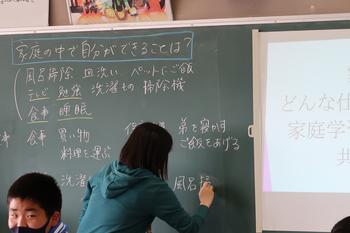 家庭の中で自分ができることは?
風呂掃除 皿洗い ペットにご飯
テレビ 勉強 洗濯もの 掃除機
食事 睡眠
食事 買い物
弟を寝かす
料理を運ぶ
ご飯をあげる
洗濯
風呂
どんな仕
家庭学
共